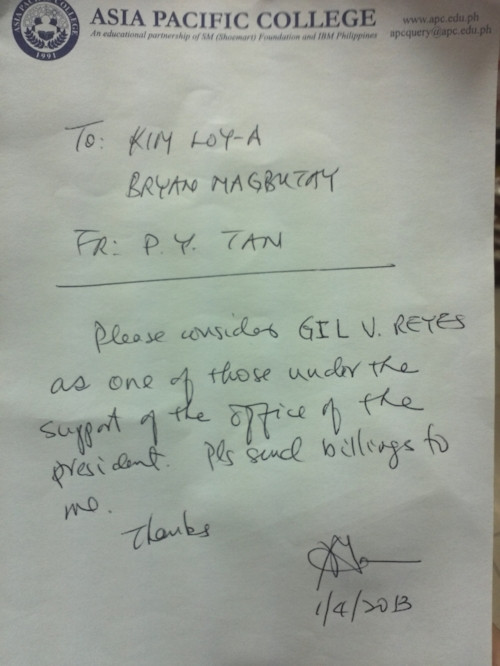 ASIA PACIFIC COLLEGE
An educational partnership of SM (Shoemart) Foundation and IBM Philippines
www.apc.edu.ph
apcquery@apc.edu.ph
ASIA PACIFIC COLLEGE
1991
To: KIM LOY-A
BRYAN MAGBUTAY
FR: P.Y. TAN
Please consider GIL V. REYES
as one of those under the
support of the office of the
president. Pls send billings to
me.
Thanks
1/4/2013